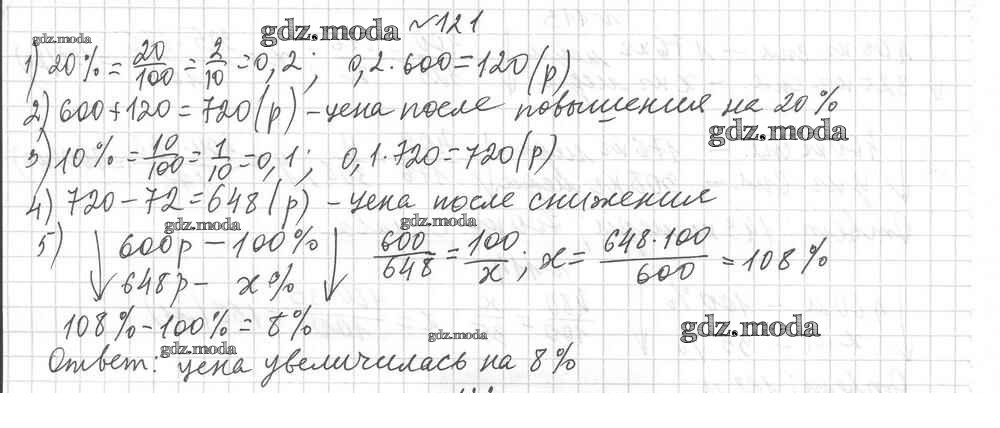 gdz.moda
gdz.moda №121
1) 20% = 20/100 = 2/10 = 0,2; 0,2·600=120(р)
2) 600+120=720(р) – цена после повышения на 20%
gdz.moda
3) 10% = 10/100 = 1/10 = 0,1; 0,1·720=720(р)
4) 720-72=648(р) – цена после снижения
gdz.moda gdz.moda
5) ↓ 600р – 100% ↓ 600/648 = 100/x; x = 648·100/600 = 108%
648р – x%
108%-100%= 8%
gdz.moda gdz.moda gdz.moda
Ответ: цена увеличилась на 8%